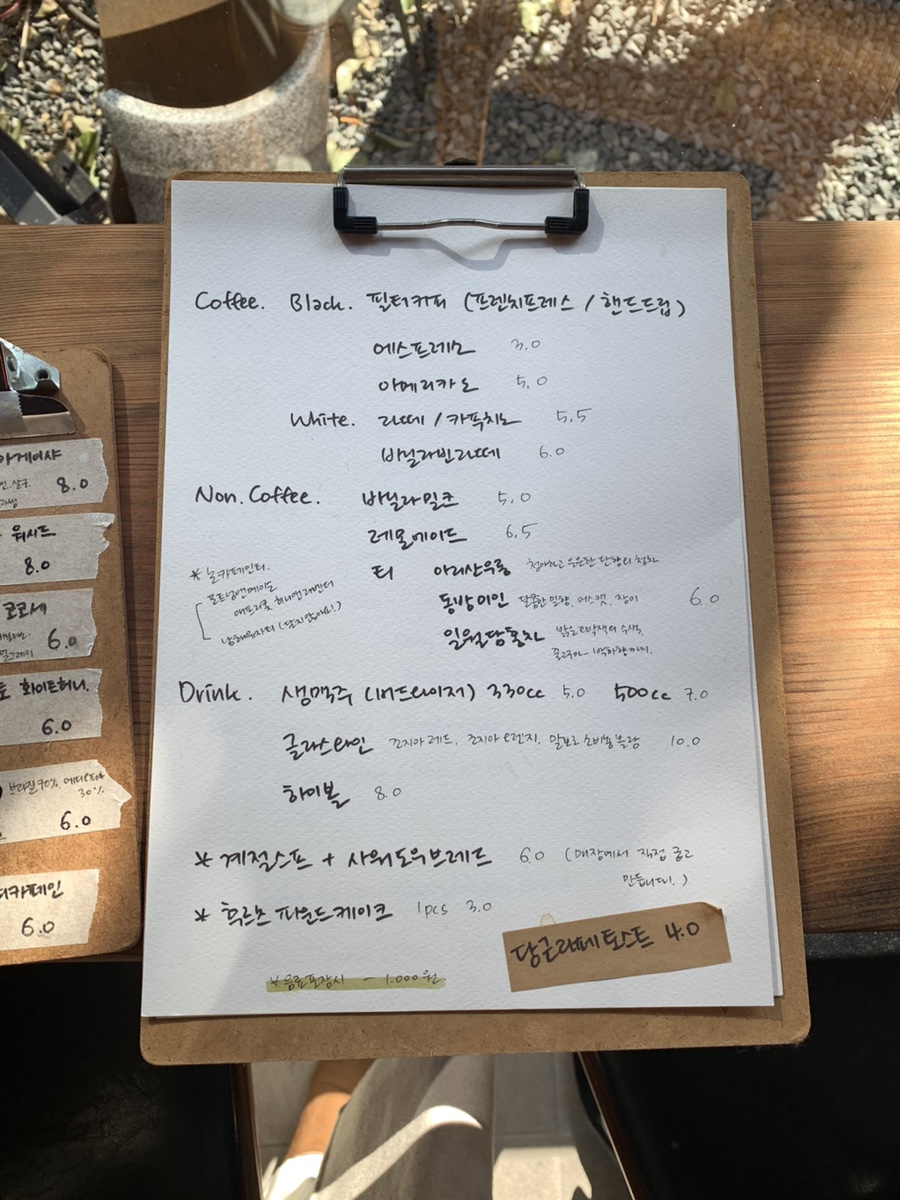 Coffee. Black. 필터커피 (프렌치프레스 / 핸드드립)
에스프레소 3.0
아메리카노 5.0
White. 라떼 / 카푸치노 5.5
바닐라빈라떼 6.0
Non.Coffee. 바닐라밀크 5.0
레몬에이드 6.5
티 아리산우롱 청아하고 은은한 단향의 청차
동방미인 달콤한 밀향. 머스캣. 장미 6.0
일월담홍차 맑은 호박색의 수색,
* 논카페인티.
포트넘앤메이슨
애프리콧 허니앤라벤더
(달지않아요!)
Drink. 생맥주 (버드와이저) 330cc 5.0 500cc 7.0
글라스와인 꼬지아 레드. 꼬지아 오렌지. 말보로 소비뇽블랑 10.0
하이볼 8.0
* 계절스프 + 사워도우브레드 6.0 (매장에서 직접 굽고
만듭니다!.)
* 휘르츠 파운드케이크 1pcs 3.0
당근라페토스트 4.0
*음료포장시 - 1.000원
게이샤
8.0
워시드
8.0
코코세
6.0
화이트허니.
6.0
브라질70% 에티오피아
30%
6.0
디카페인
6.0